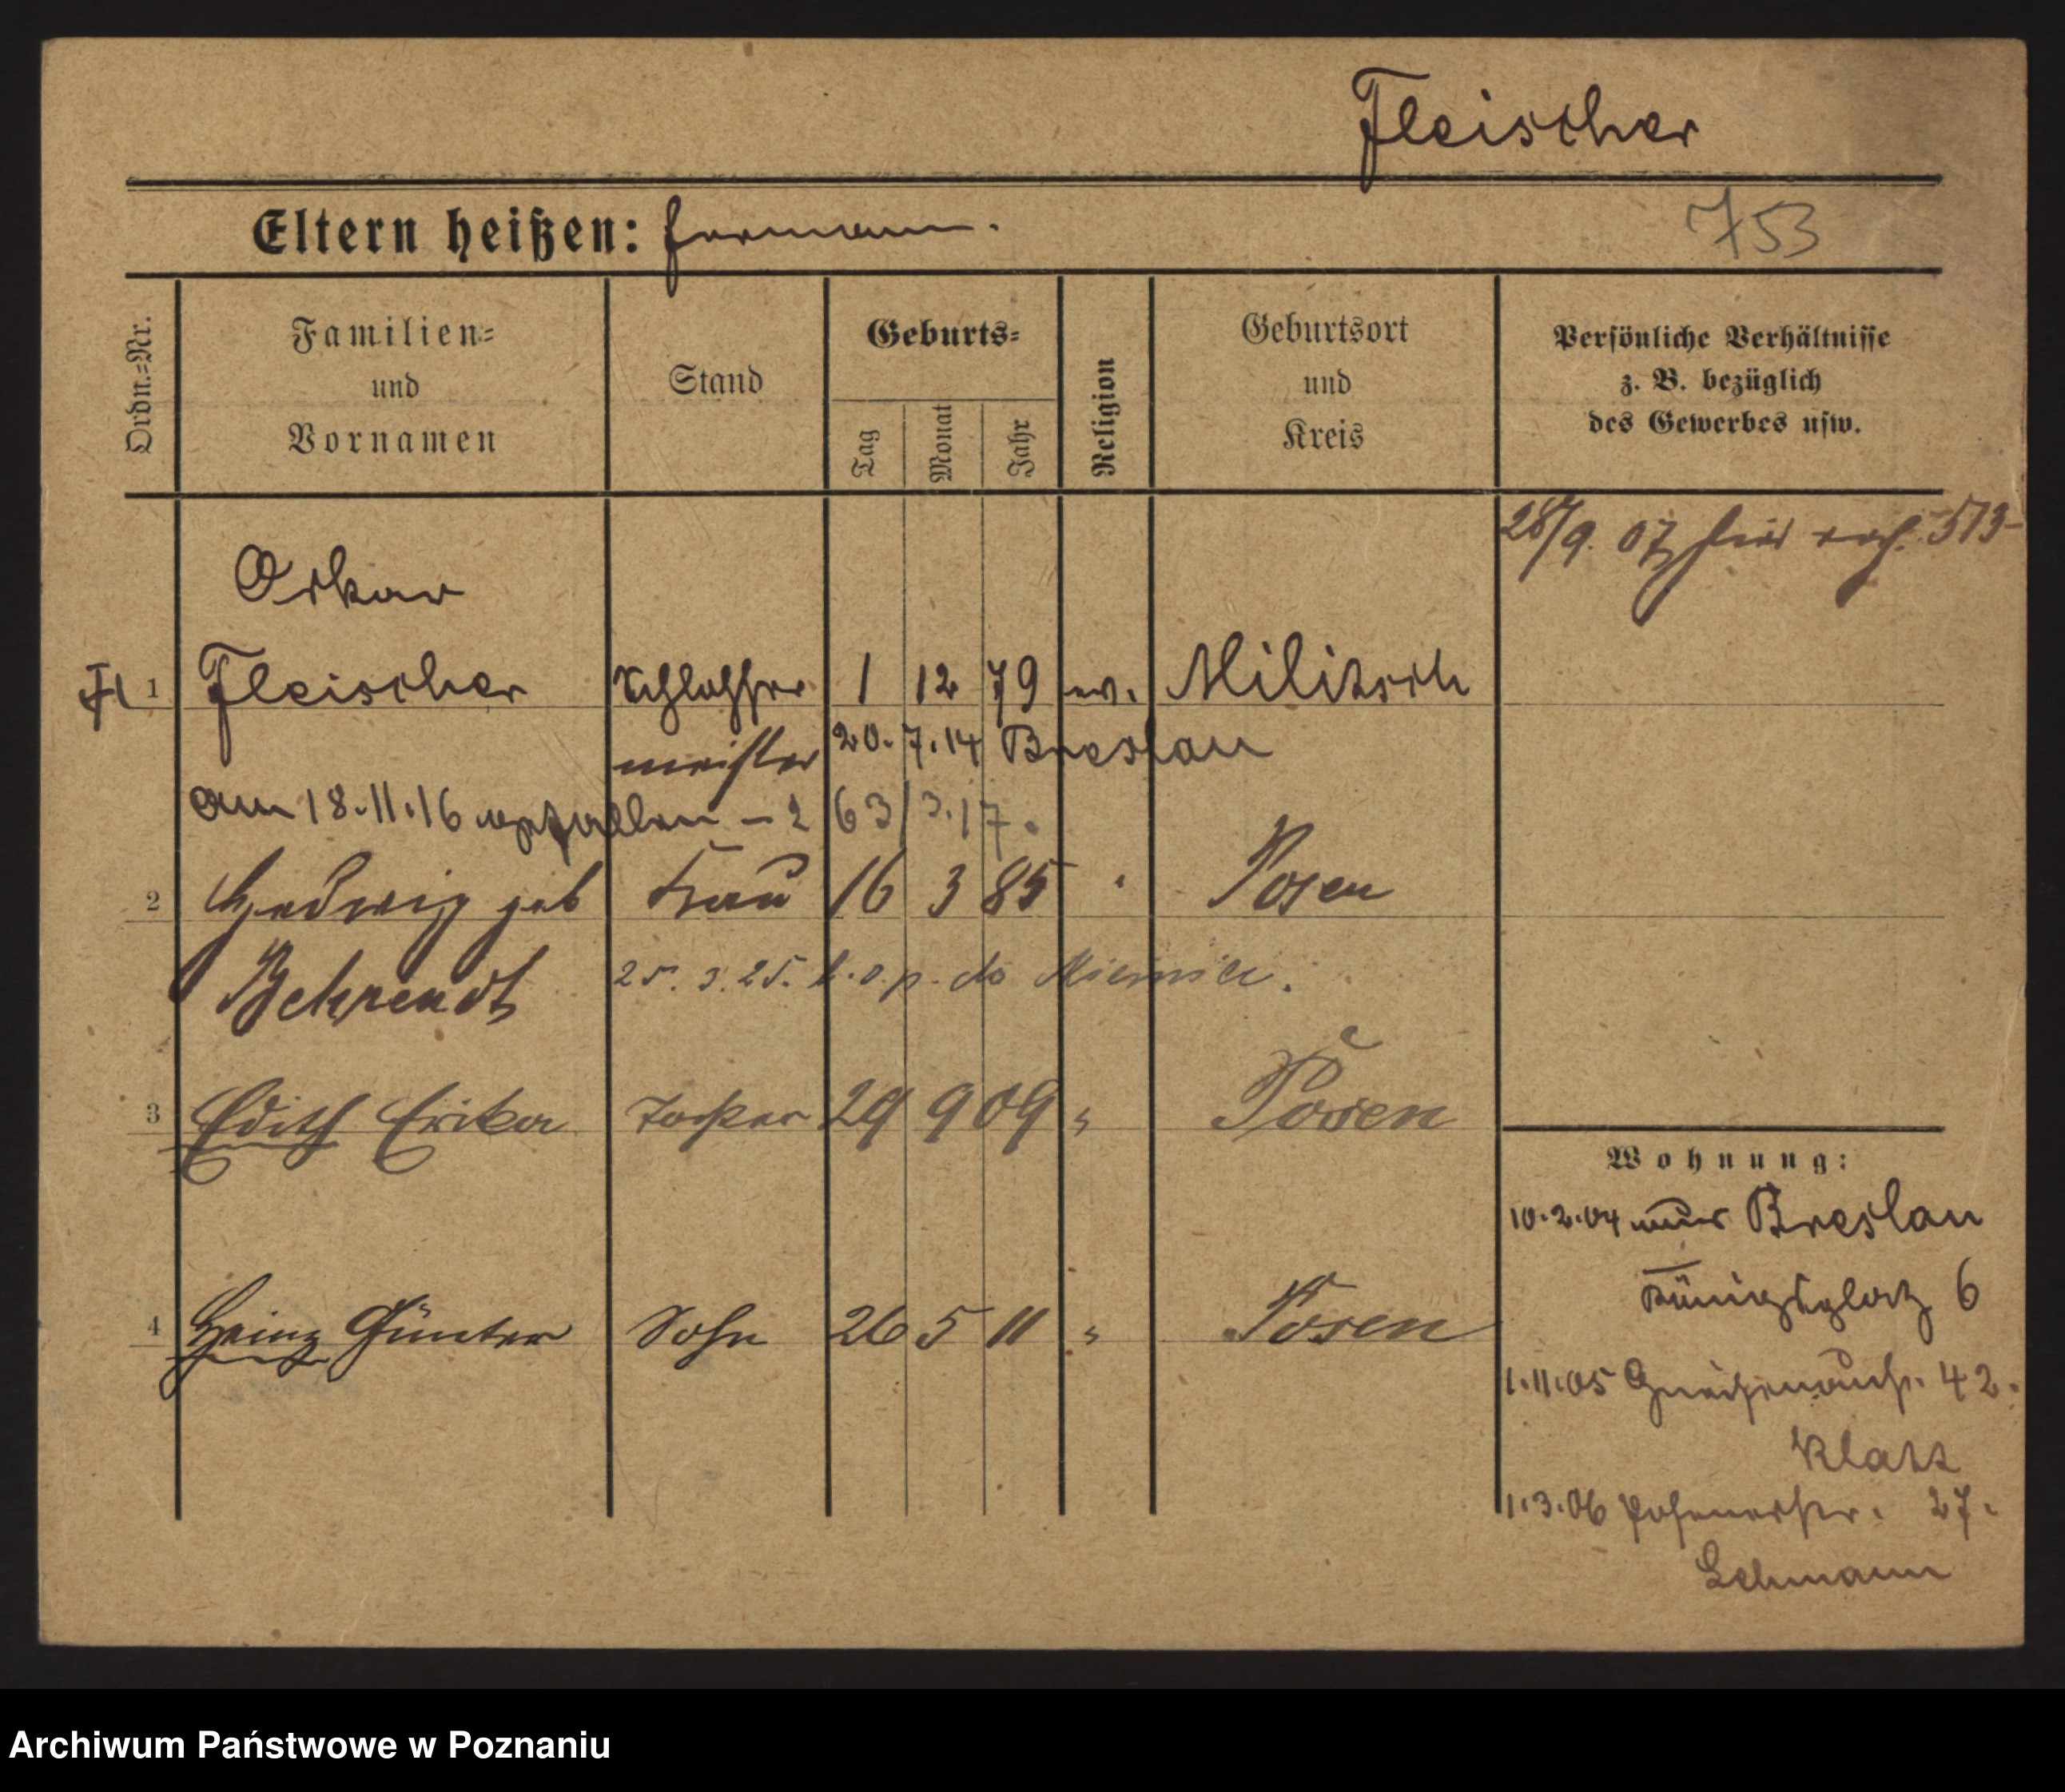 Fleischer
Eltern heißen: Hermann.
753
Ordn.=Nr.
Familien=
und
Vornamen
Stand
Geburts=
Tag
Monat
Jahr
Religion
Geburtsort
und
Kreis
Persönliche Verhältnisse
z. B. bezüglich
des Gewerbes usw.
28/9. 07 hier verh. 573
Oskar
Fl 1 Fleischer Schlosser 1 12 79 ev. Militsch
meister 20. 7. 14 Breslau
am 18.11.16 gefallen - 263/3.17.
2 Hedwig geb Frau 16 3 85 " Posen
Behrendt 25. 3. 25. do
3 Edith Erika Tochter 29 9 09 " Posen
Wohnung:
10.2.04 Breslau
Königsplatz 6
4 Heinz Günter Sohn 26 5 11 " Posen
1.11.05 Gneisenaustr. 42.
Klatt
1.3.06 Posenerstr. 27.
Lehmann
Archiwum Państwowe w Poznaniu